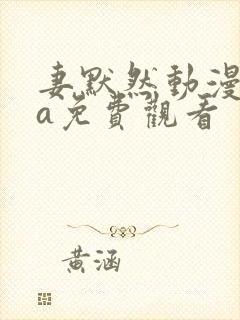 妻默然動漫
a免費觀看
黃涵